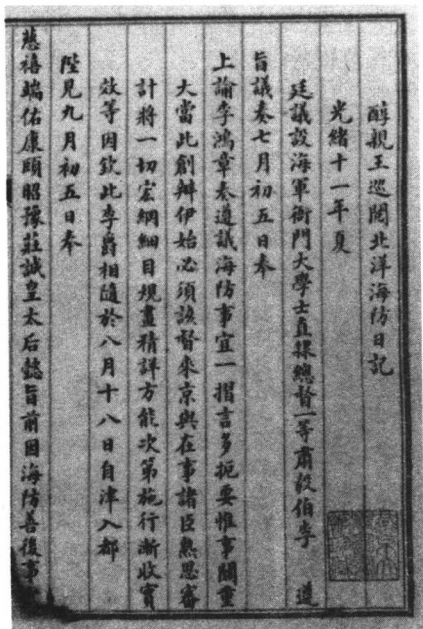 醇親王巡閱北洋海防日記
光緒十一年夏
廷議設海軍衙門大學士直隸總督一等肅毅伯李 遵
旨議奏七月初五日奉
上諭李鴻章奏遵議海防事宜一摺言多扼要惟事關重
大當此創辦伊始必須該督來京與在事諸臣熟思審
計將一切宏綱細目規畫精詳方能次第施行漸收實
效等因欽此李爵相隨於八月十八日自津入都
陛見九月初五日奉
慈禧端佑康頤昭豫莊誠皇太后懿旨前因海防善後事